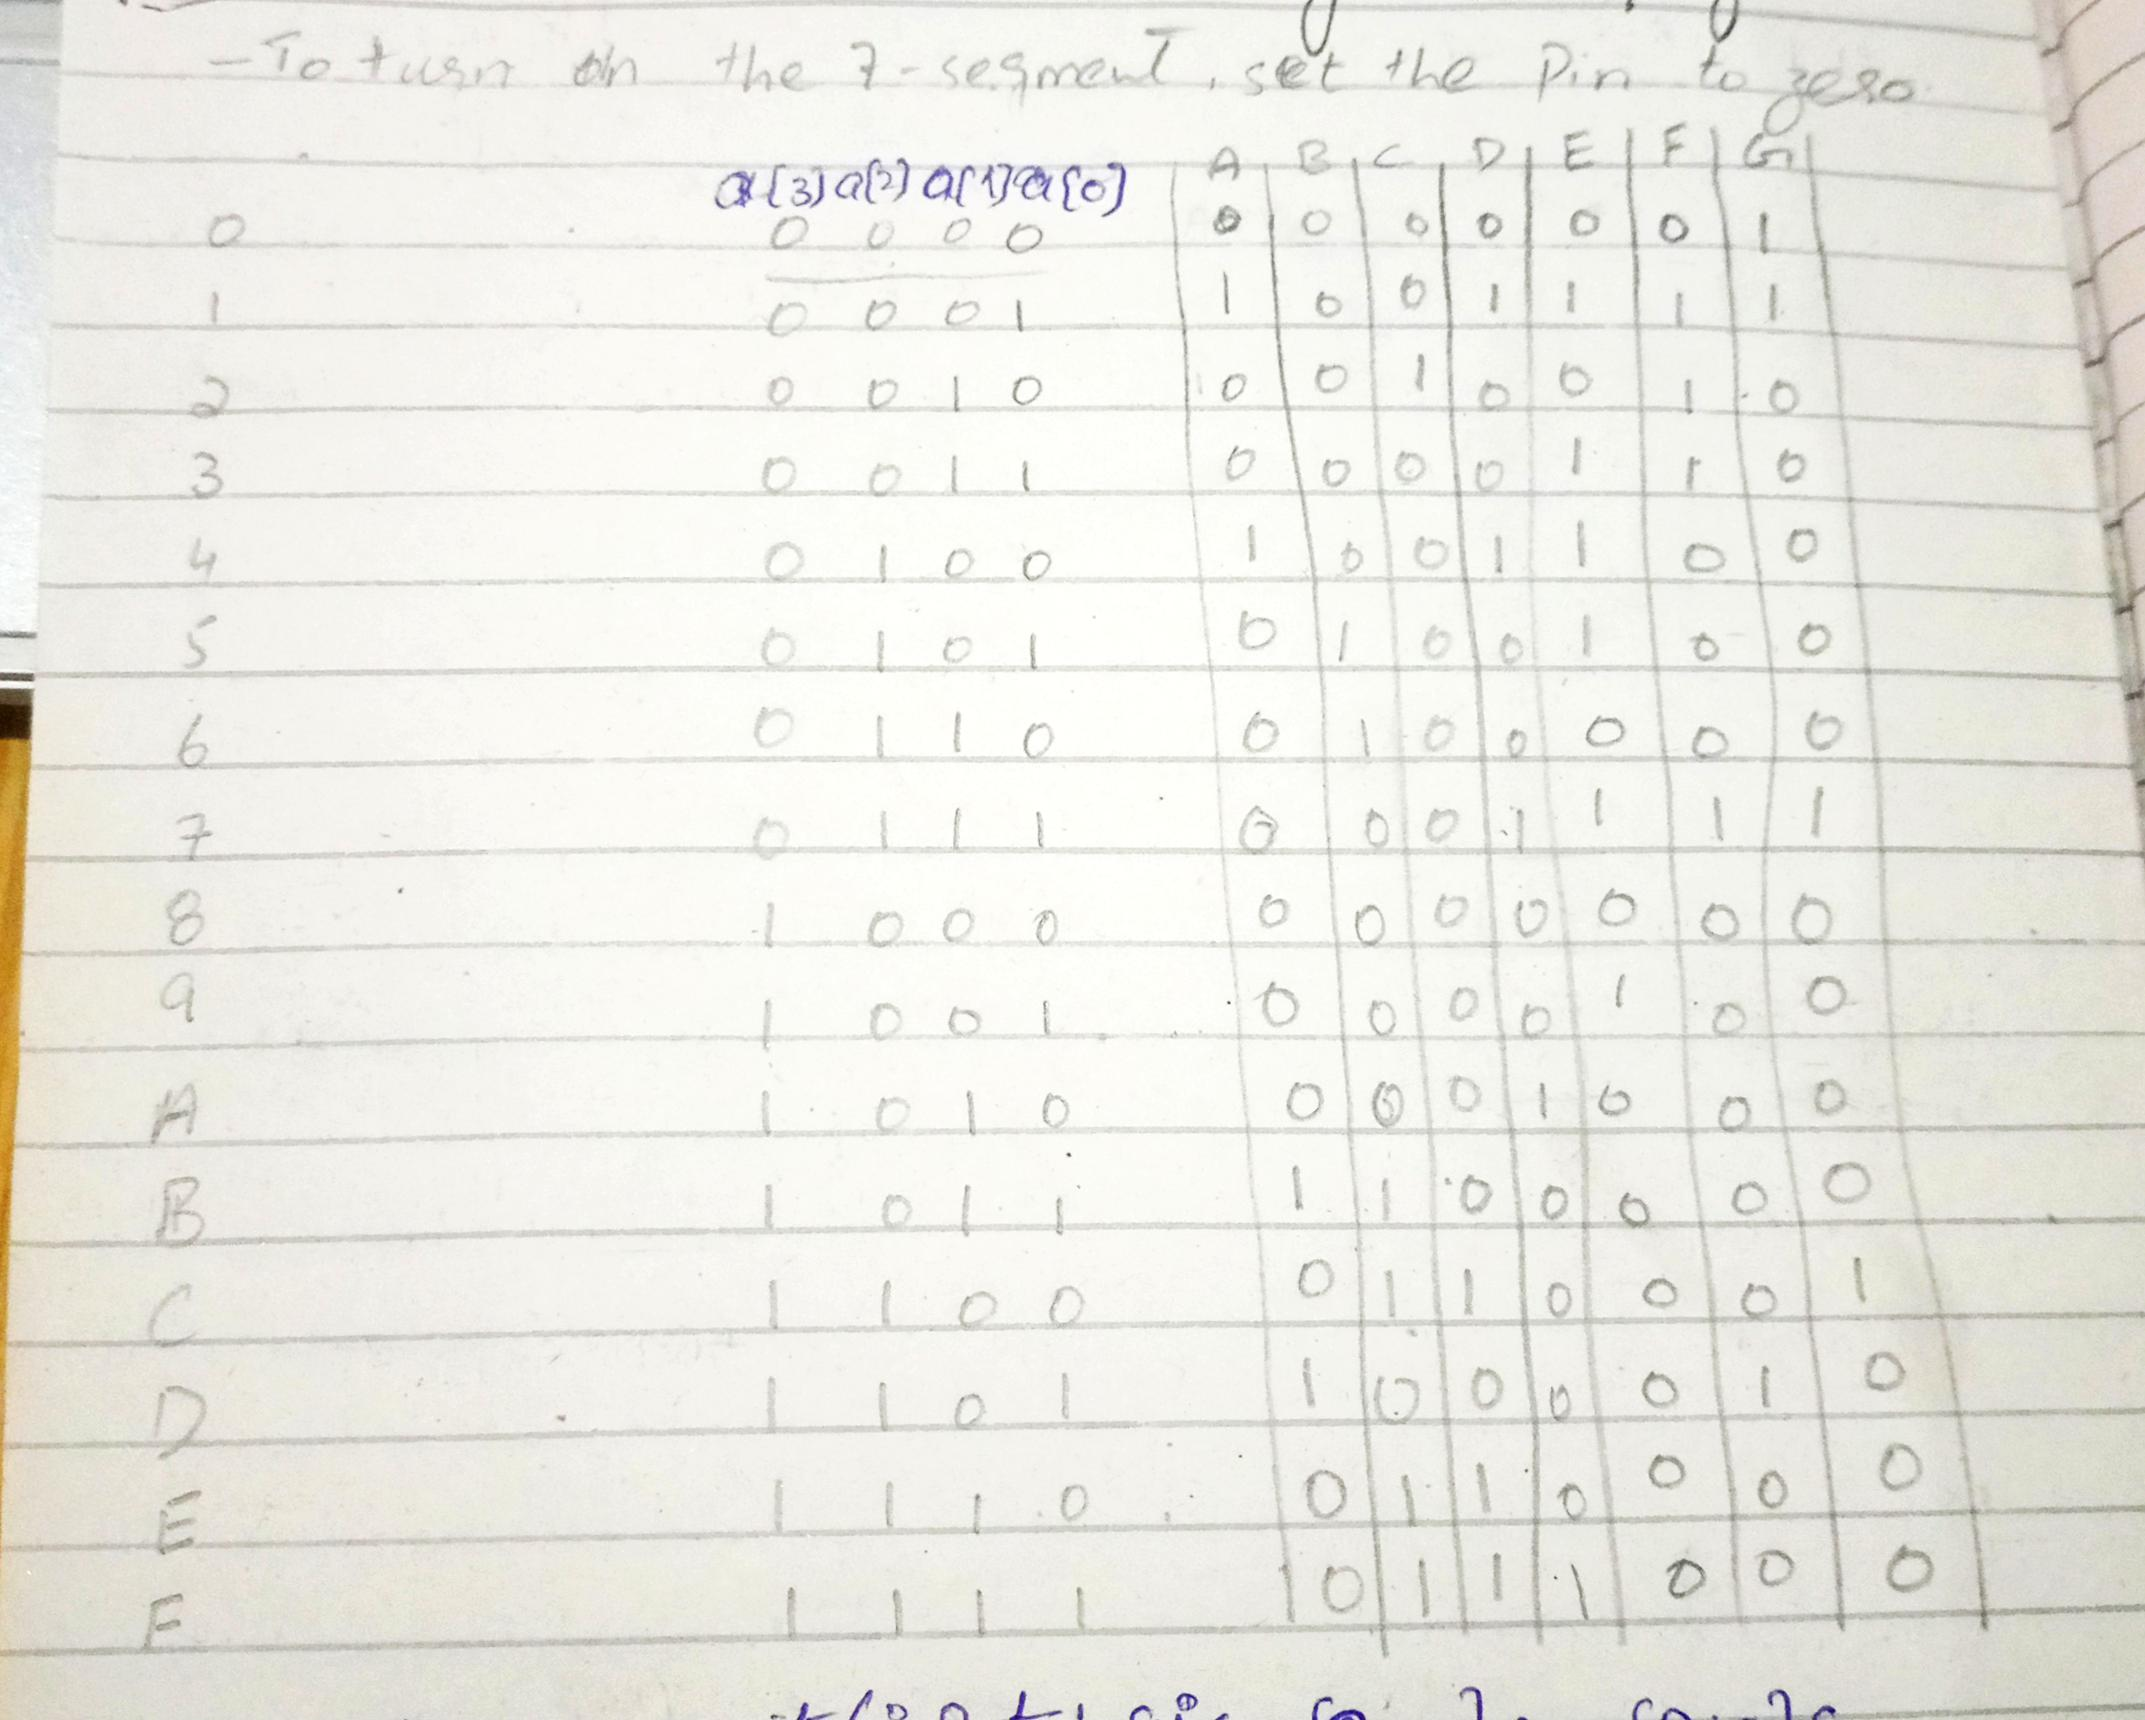 - To turn on the 7-segment, set the Pin to zero
a[3] a[2] a[1] a[0] A B C D E F G
0 0 0 0 0 0 0 0 0 0 0 1
1 0 0 0 1 1 0 0 1 1 1 1
2 0 0 1 0 0 0 1 0 0 1 0
3 0 0 1 1 0 0 0 0 1 1 0
4 0 1 0 0 1 0 0 1 1 0 0
5 0 1 0 1 0 1 0 0 1 0 0
6 0 1 1 0 0 1 0 0 0 0 0
7 0 1 1 1 0 0 0 1 1 1 1
8 1 0 0 0 0 0 0 0 0 0 0
9 1 0 0 1 0 0 0 0 1 0 0
A 1 0 1 0 0 0 0 1 0 0 0
B 1 0 1 1 1 1 0 0 0 0 0
C 1 1 0 0 0 1 1 0 0 0 1
D 1 1 0 1 1 0 0 0 0 1 0
E 1 1 1 0 0 1 1 0 0 0 0
F 1 1 1 1 0 1 1 1 0 0 0